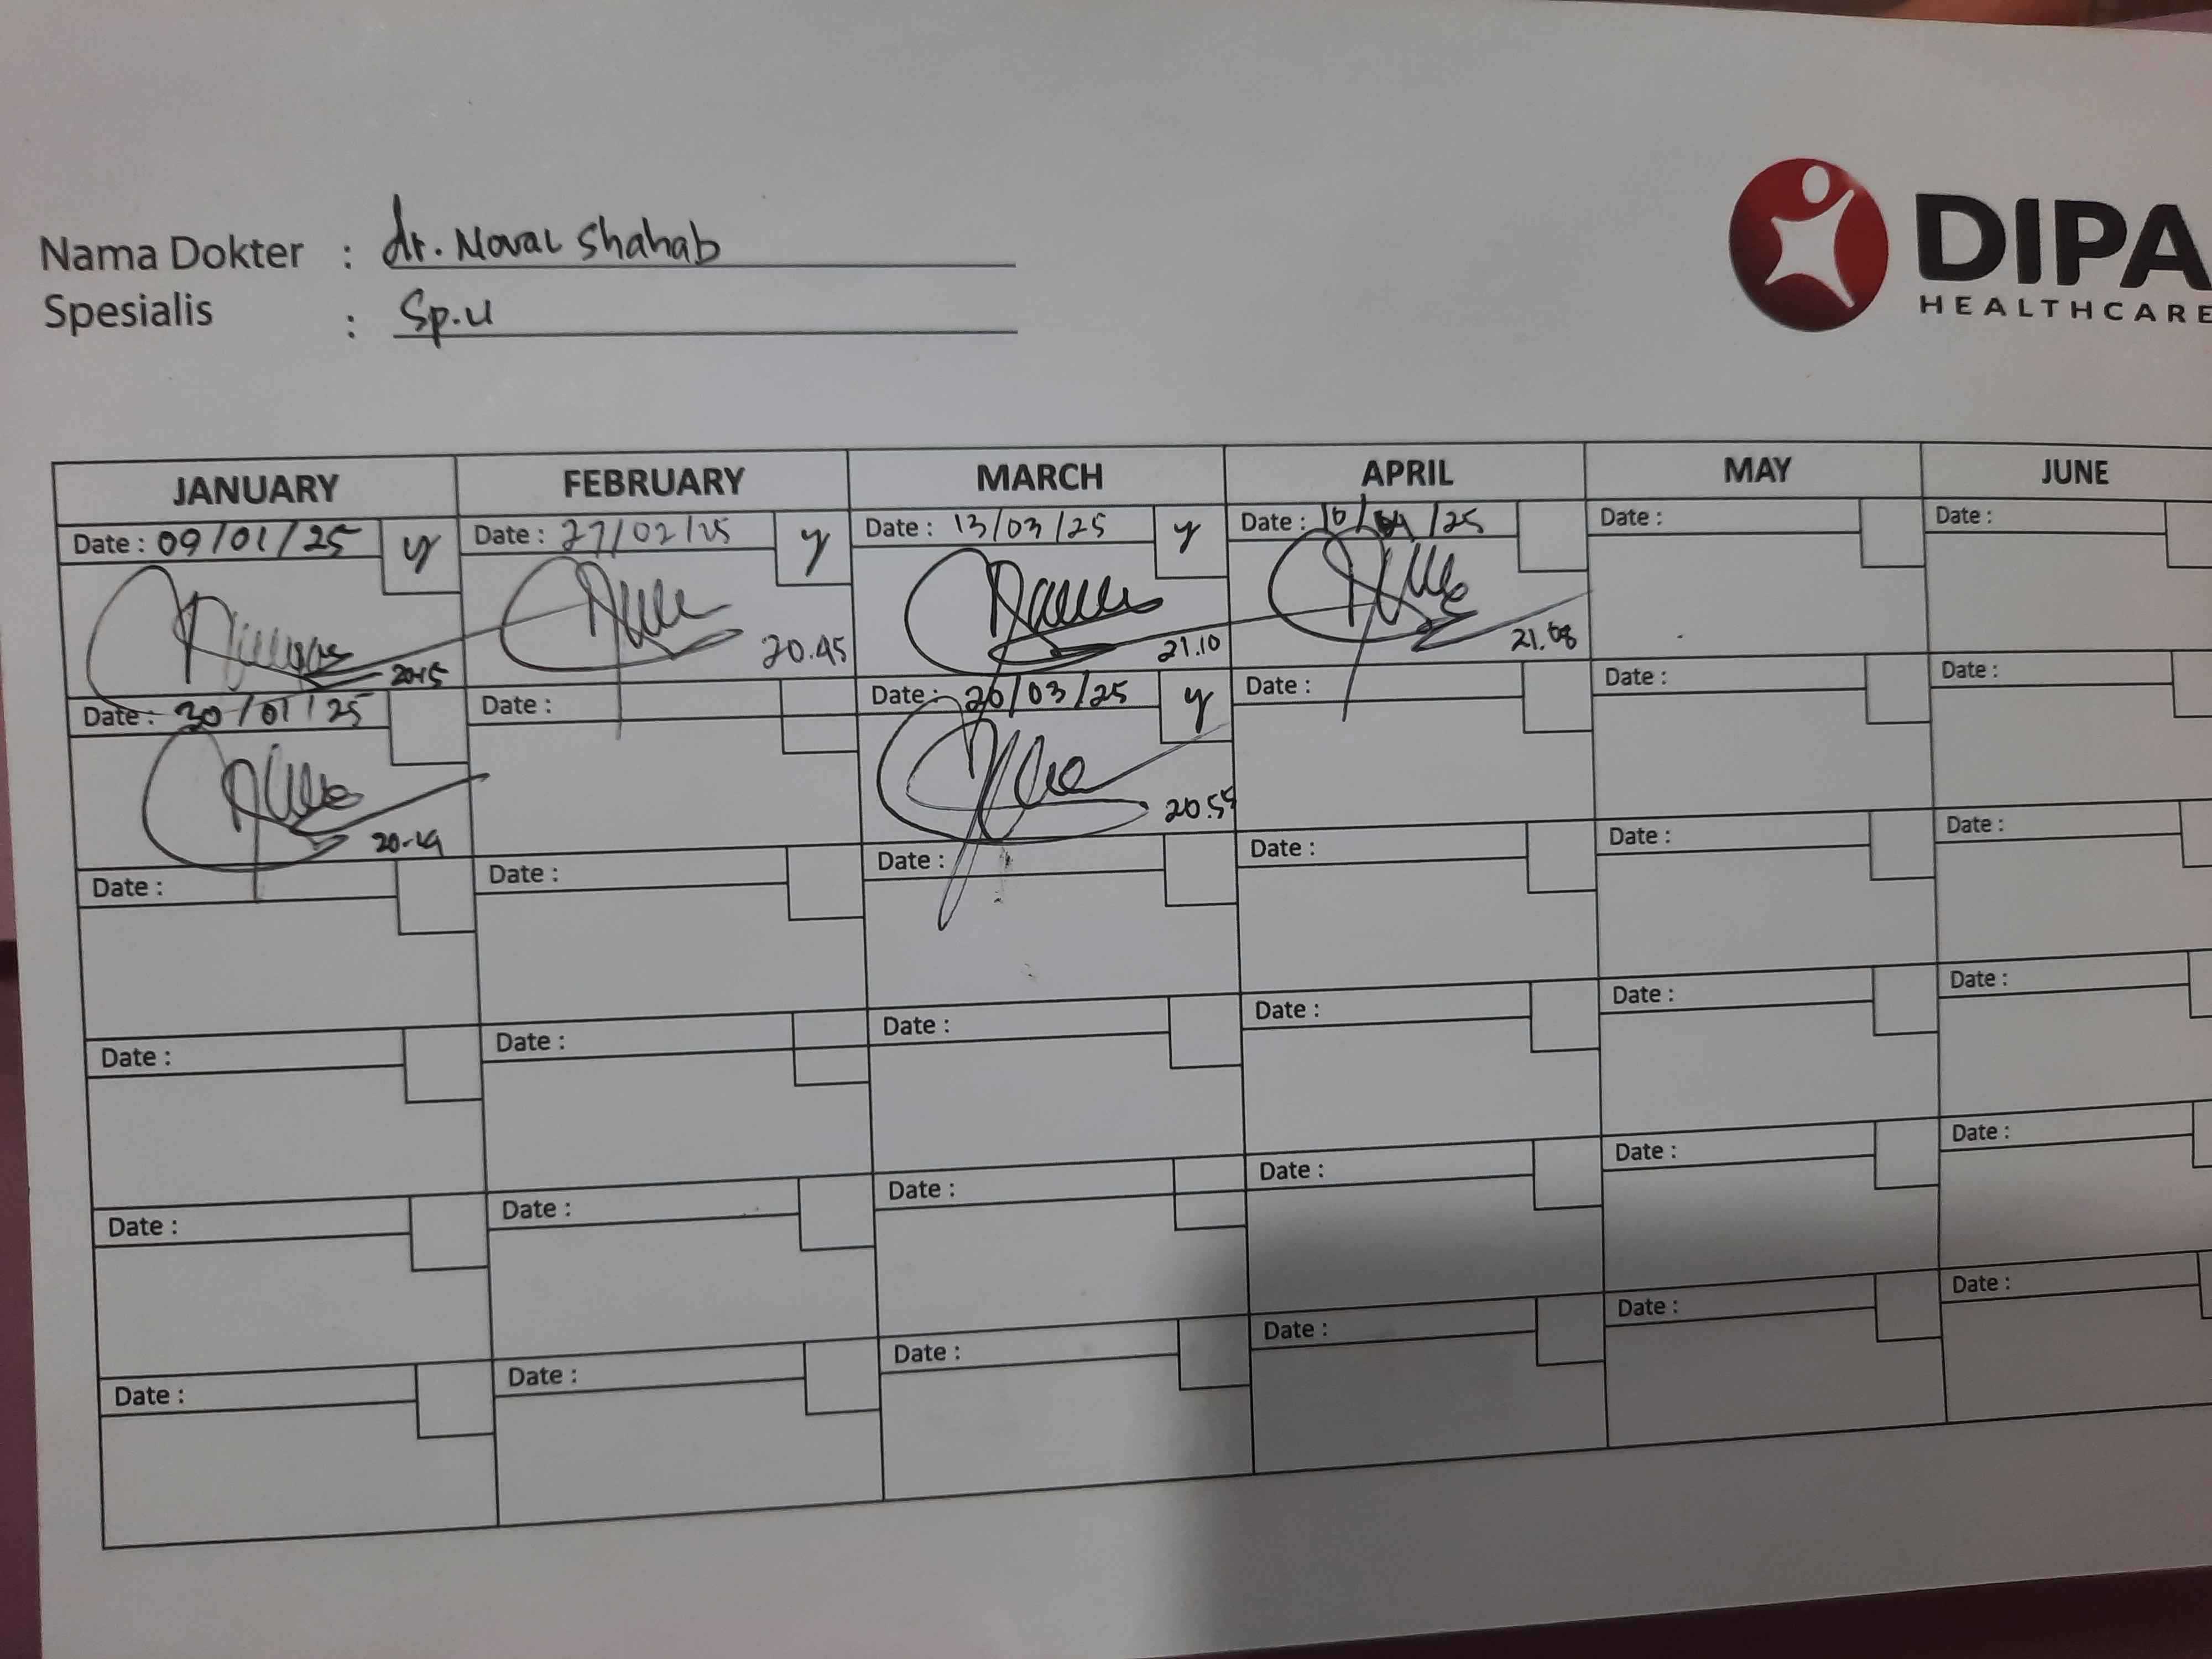 Nama Dokter : dr. Noval Shahab
Spesialis : Sp.U
DIPA
HEALTHCARE
JANUARY FEBRUARY MARCH APRIL MAY JUNE
Date : 09/01/25 y Date : 27/02/25 y Date : 13/03/25 y Date : 10/04/25 Date : Date :
20.45 21.10 21.08
Date : 30/01/25 Date : Date : 26/03/25 y Date : Date : Date :
Date : Date : Date : Date : Date : Date :
Date : Date : Date : Date : Date : Date :
Date : Date : Date : Date : Date : Date :
Date : Date : Date : Date : Date : Date :